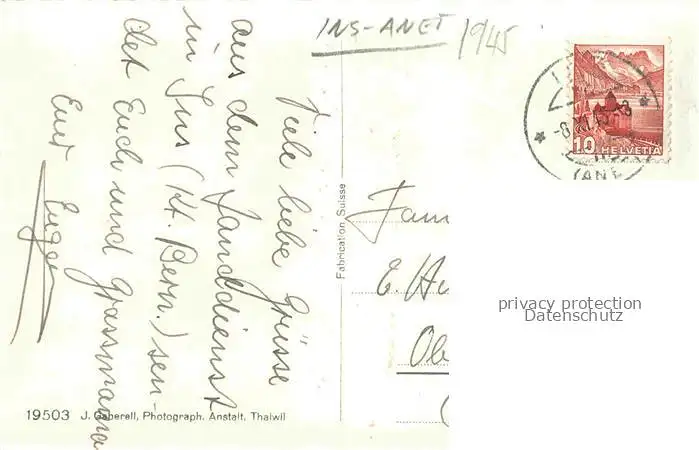 INS-ANET 1945
Viele liebe Grüsse
aus dem Landdienst
in Ins (Kt. Bern.) sen-
det Euch und Grassmamma
Euer Eugen
Fabrication Suisse
Fam
E.
19503 J. Gaberell, Photograph. Anstalt, Thalwil
10 HELVETIA
-8.XI.45-8
(ANE
privacy protection
Datenschutz